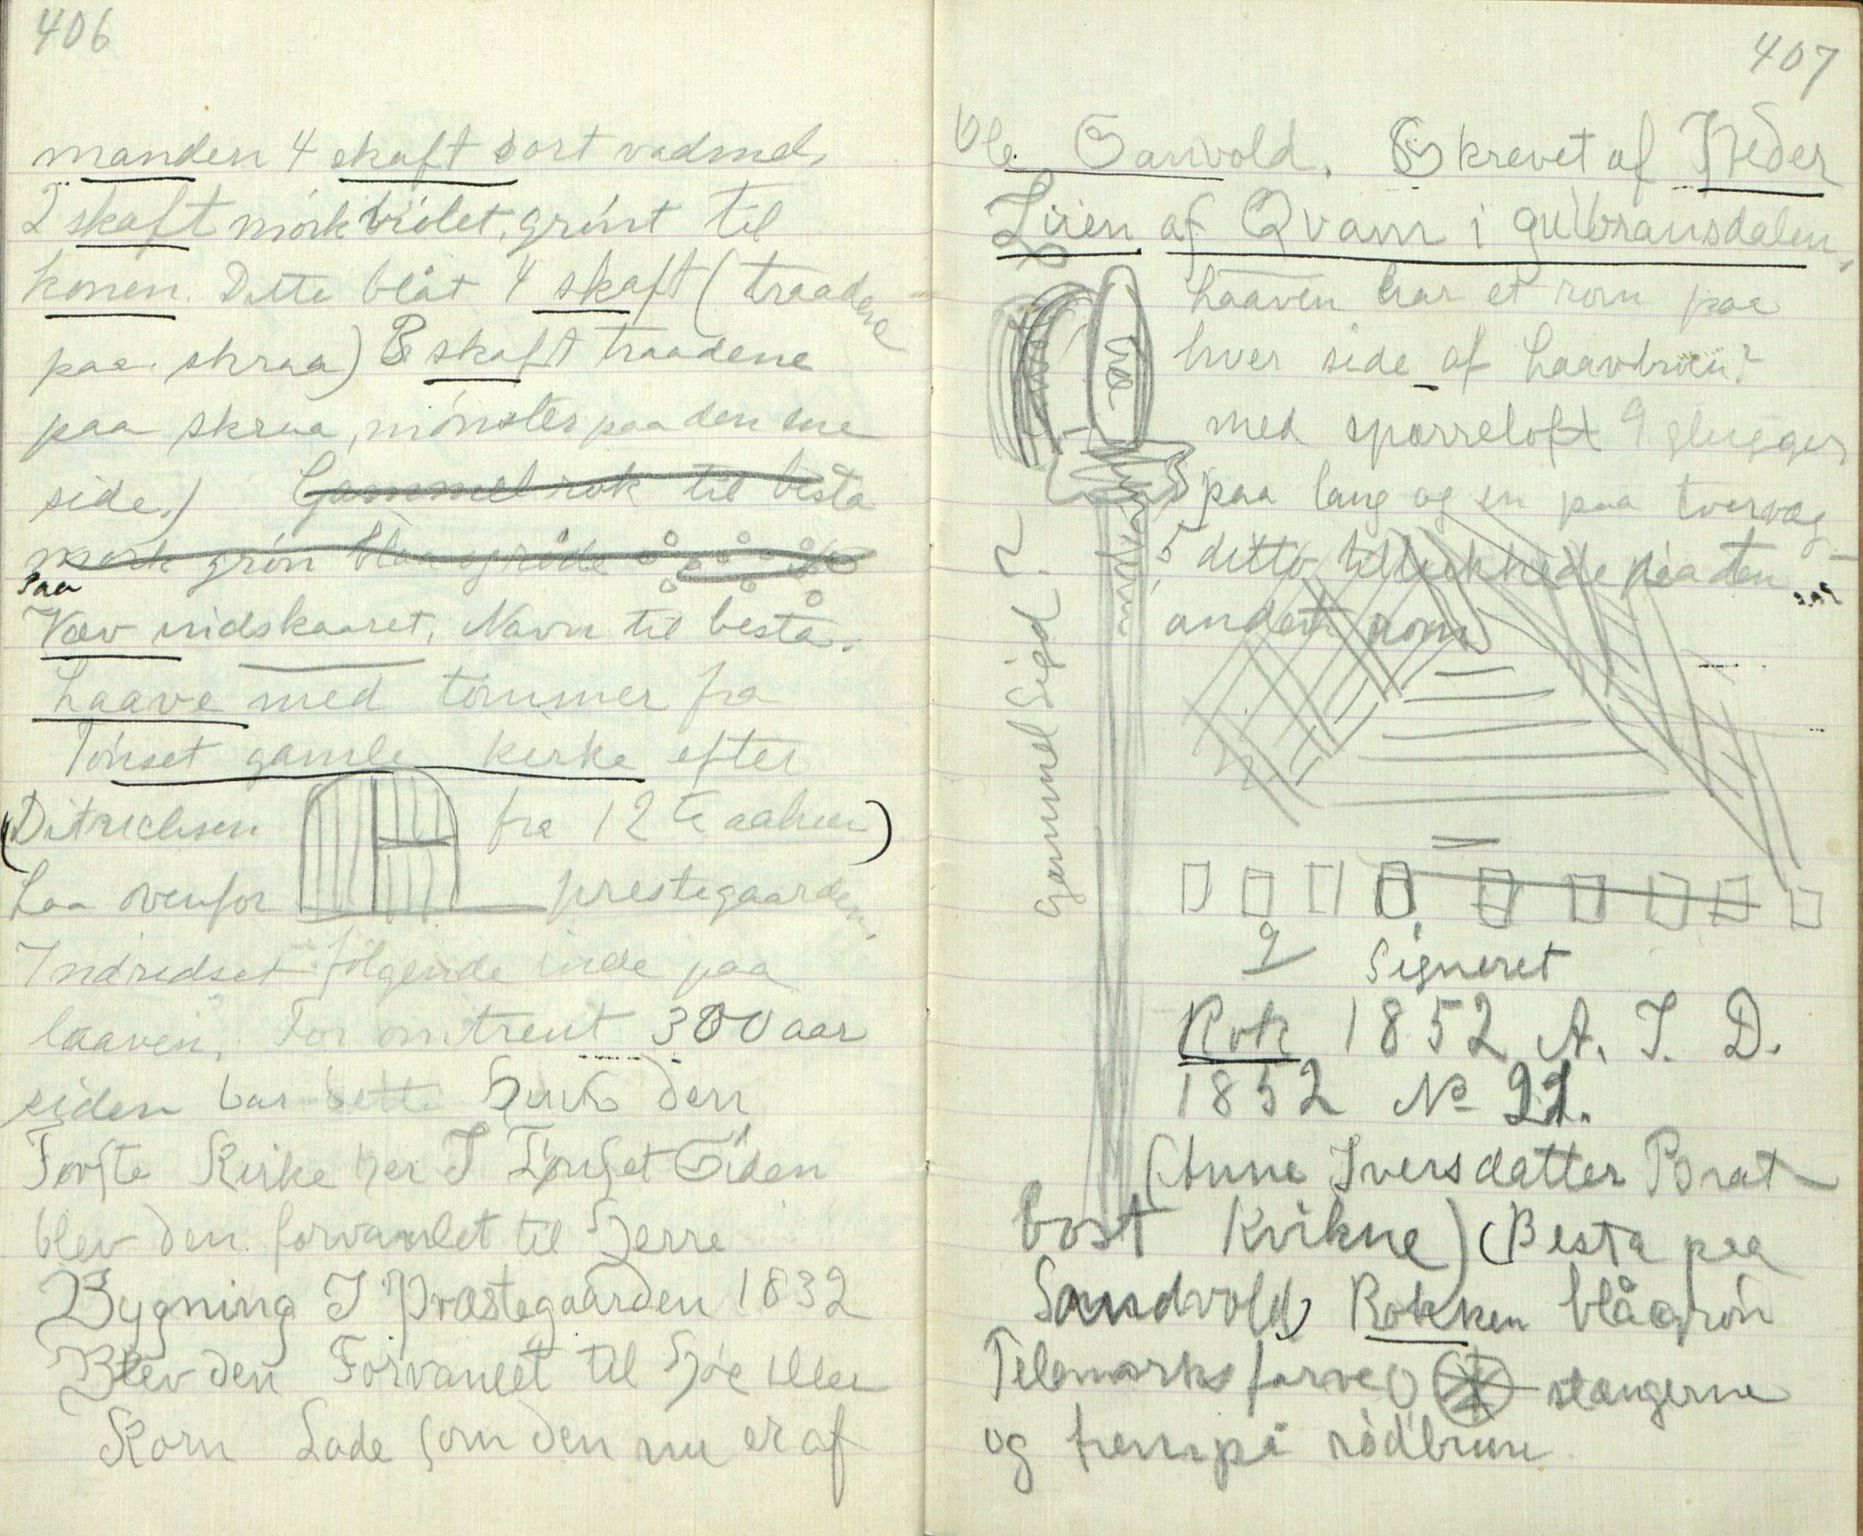 406
manden 4 skaft sort vadmel,
2 skaft mörk violet, grönt til
konen. Dette blåt 4 skaft (traadene
paa skraa) 3 skaft traadene
paa skraa, mönster paa den ene
side.) Gammel rok til besta
mørk grön blaa og røde
paa
Væv indskaaret, Navn til besta.
Laave med tömmer fra
Tönset gamle kirke efter
(Ditrichsen fra 12te aarhun)
Laa ovenfor prestegaarden,
Indridset følgende inde paa
laaven, For omtrent 300 aar
siden var dette Huus den
Forste Kirke her I Tønset Siden
blev den forvanlet til Herre
Bygning I Præstegaarden 1832
Blev den Forvanlet til Höe eller
Korn Lade som den nu er af
407
Ole Sanvold. Skrevet af Peder
Lien af Qvam i gulbransdalen,
Laaven har et rom paa
hver side af Laavbroen?
med sparreloft 9 glugger
paa lang og en paa tvervæg
5 ditto tillukkede paa den
andet rom
træ
Gammel Sigd?
9 Signeret
Rok 1852 A. I. D.
1852 No 22.
(Anne Iversdatter Borat
bost Kvikne) (Besta paa
Sandvold) Rokken blågrön
Telemarks farve stængerne
og trempå rödbrun